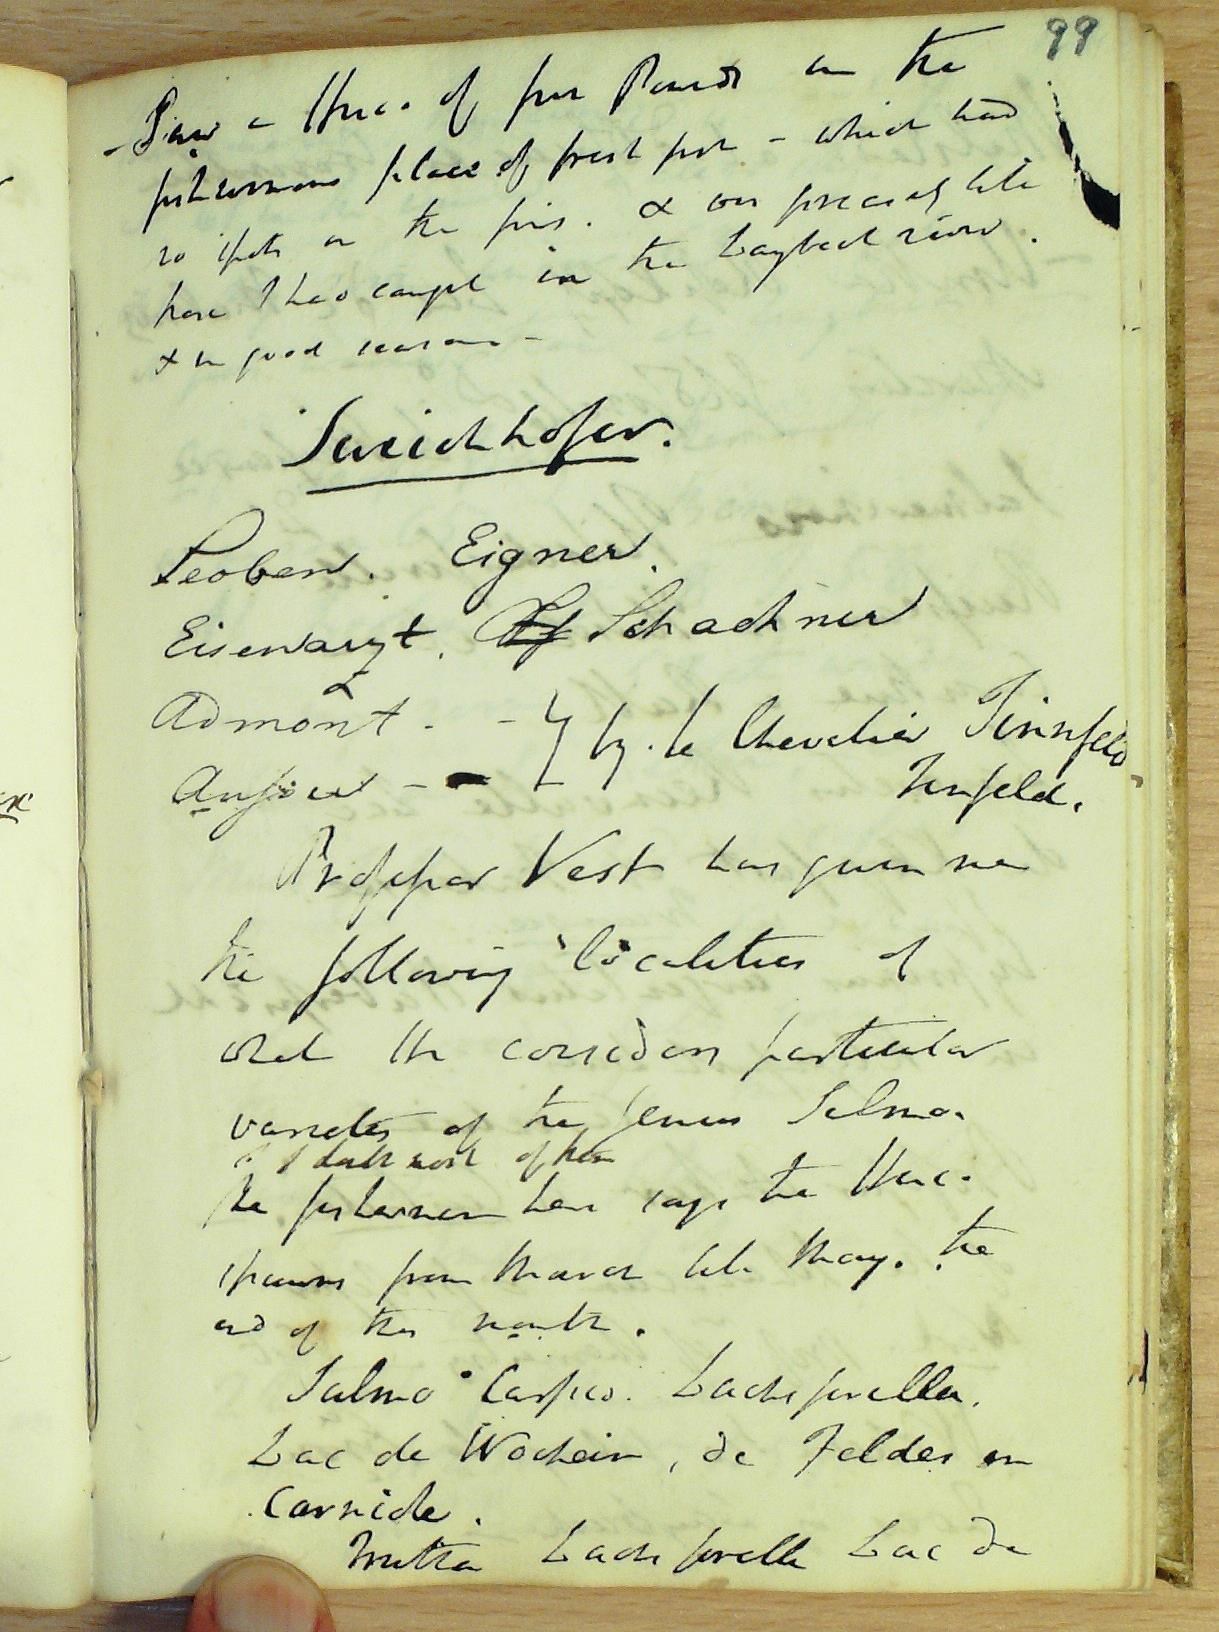 99
- Saw a Huc. of four Pounds in the
fishermans place of fresh fish - which had
no spots on the fins. & was precisely like
those I had caught in the Laybach river.
& in good season -
Sweichhofer.
Leoben. Eigner.
Eisenarzt. Schachner
&
Admont. - } by. le Chevalier Tinnfeld
Aussee - - Tinfeld.
Professor Vest has given me
the following localities of
what he considers particular
varieties of the genus Salmo.
I doubt most of them
The fisherman here says the Huc.
spawns from March till May. the
end of the month.
Salmo Carpio. Lachsforelle.
Lac de Wochein, de Feldes en
Carniole.
Trutta Lachsforelle Lac de